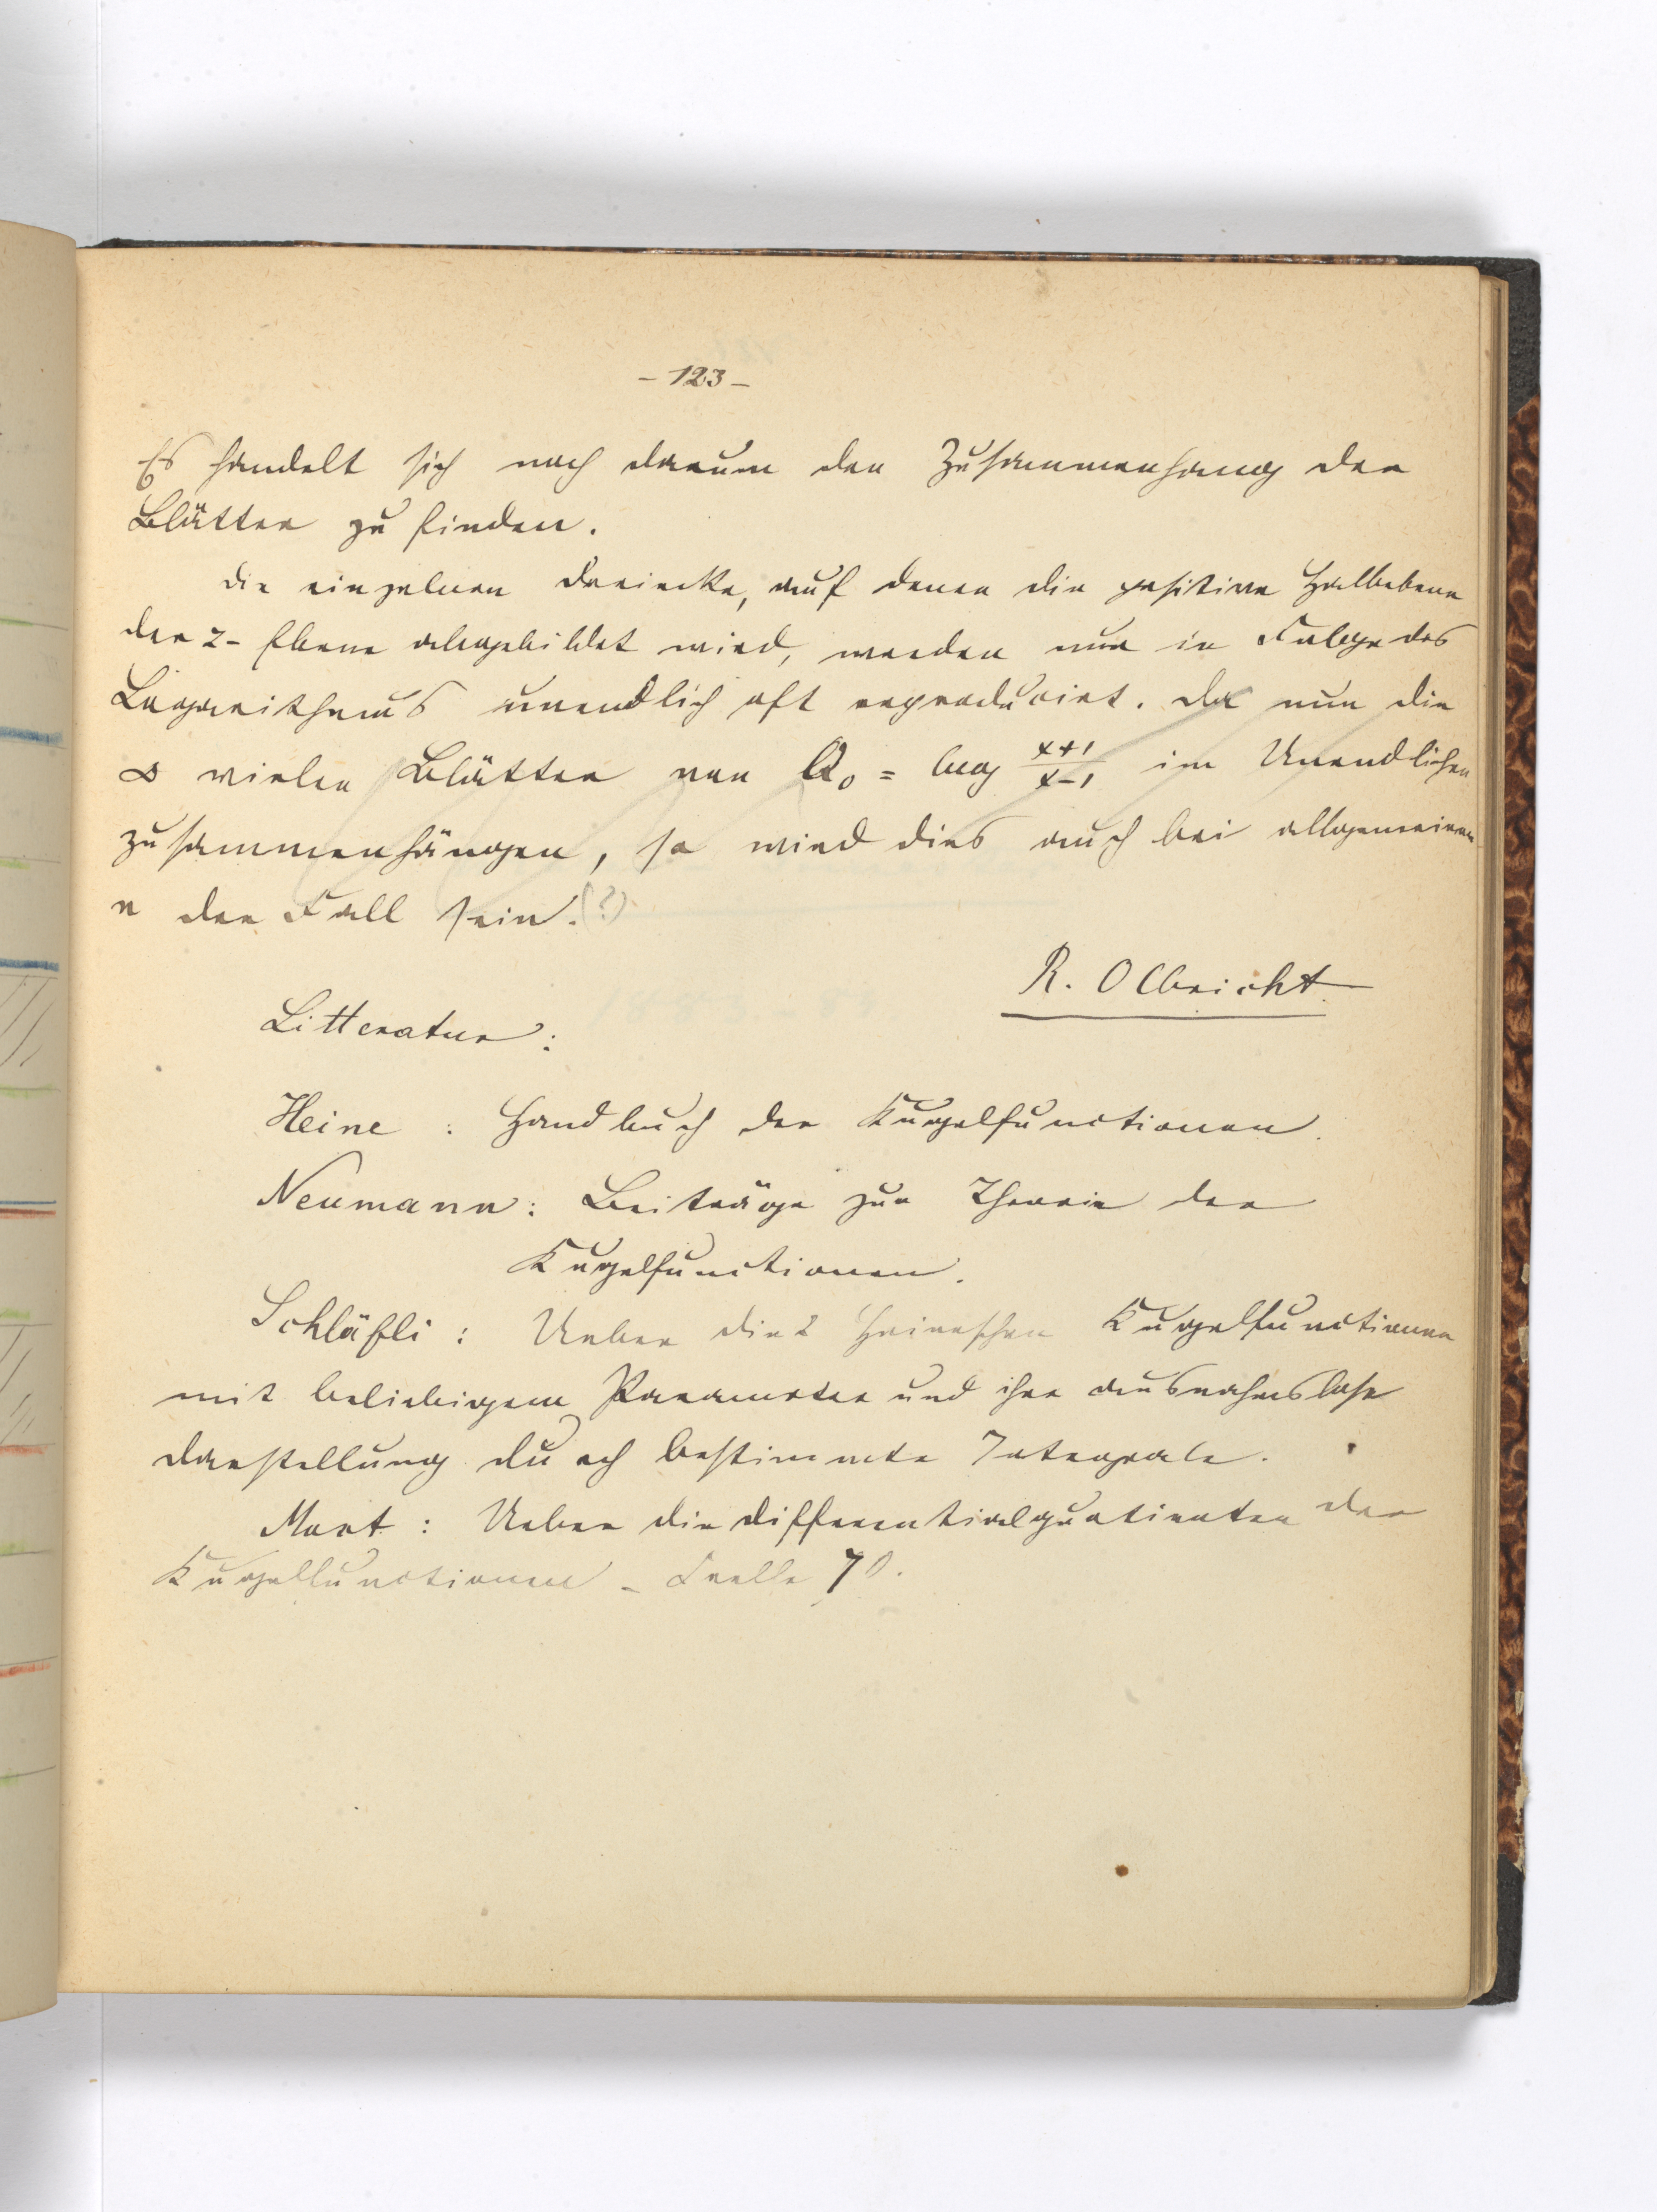 - 123 -
Es handelt sich noch darum den Zusammenhang der
Blätter zu finden.
Die einzelnen Dreiecke, auf denen die positive Halbebene
der z-Ebene abgebildet wird, werden nur in Folge des
Logarithmus unendlich oft reproducirt. Da nun die
∞ vielen Blätter von Q₀ = log (x+1)/(x-1) im Unendlichen
zusammenhängen, so wird dies auch bei allgemeinem
n der Fall sein. (?)
R. Olbricht
Litteratur:
Heine: Handbuch der Kugelfunctionen.
Neumann: Beiträge zur Theorie der
Kugelfunctionen.
Schläfli: Ueber die 2 Heineschen Kugelfunctionen
mit beliebigem Parameter und ihre ausnahmslose
Darstellung durch bestimmte Integrale.
Most: Ueber die Differentialquotienten der
Kugelfunctionen - Crelle 70.